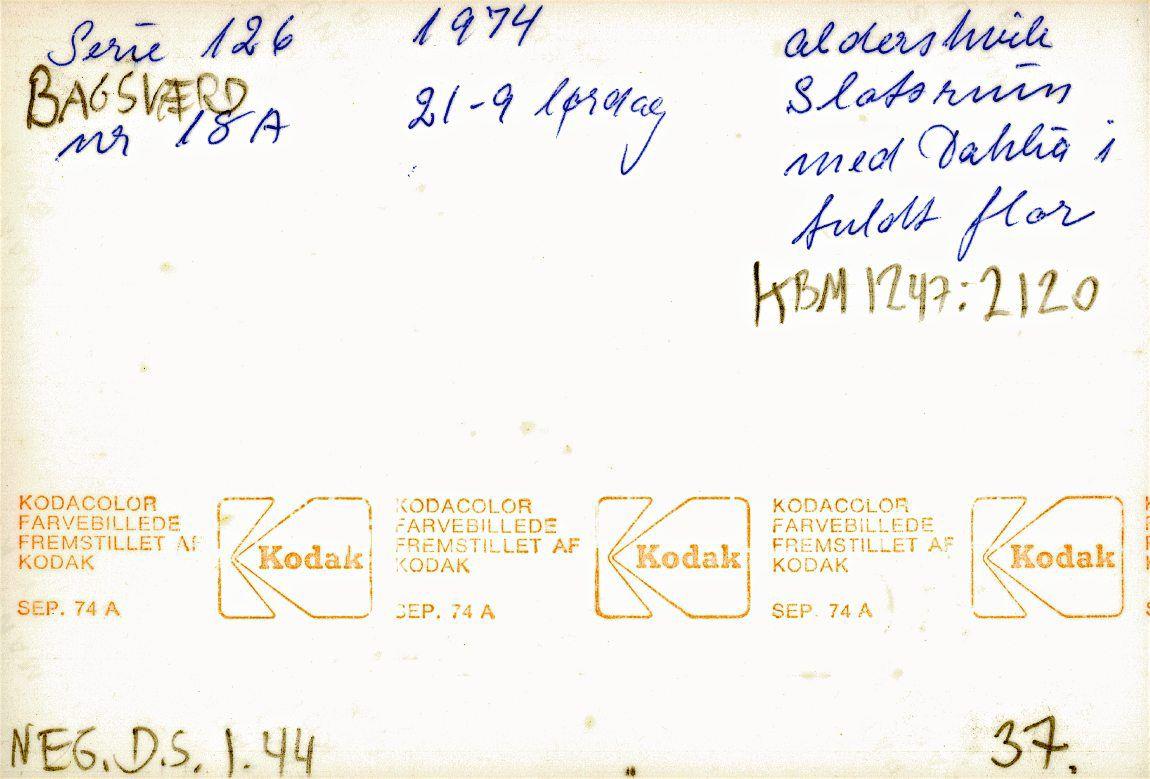 Serie 126
BAGSVÆRD
nr 18A
1974
21-9 lørdag
aldershvile
Slotsruin
med Dahlia i
fuldt flor
HBM 1247:2120
KODACOLOR
FARVEBILLEDE
FREMSTILLET AF
KODAK
SEP. 74 A
Kodak
KODACOLOR
FARVEBILLEDE
FREMSTILLET AF
KODAK
SEP. 74 A
Kodak
KODACOLOR
FARVEBILLEDE
FREMSTILLET AF
KODAK
SEP. 74 A
Kodak
NEG. D.S. 1.44
37.